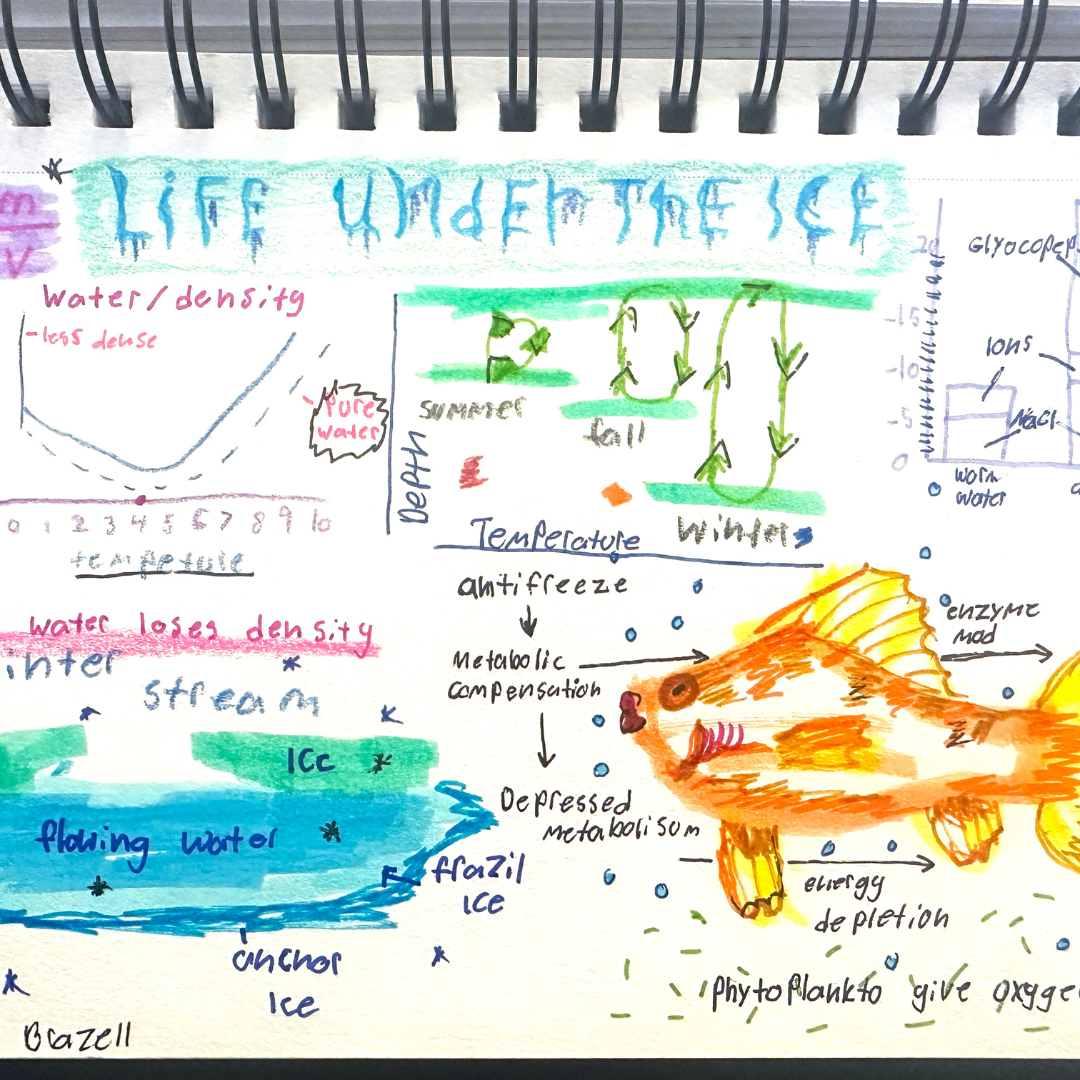 LIFE UNDER THE ICE
m
V
water/density
-less dense
Pure
water
0 1 2 3 4 5 6 7 8 9 10
tempeture
Depth
summer
fall
Winter
Temperature
20
-15
-10
-5
0
Glycopep
Ions
NaCl
warm
water
water loses density
inter
stream
Ice
flowing water
frazil
Ice
anchor
Ice
Brazell
antifreeze
Metabolic
compensation
Depressed
metabolisom
enzyme
mod
energy
depletion
phytoplankto give oxyge